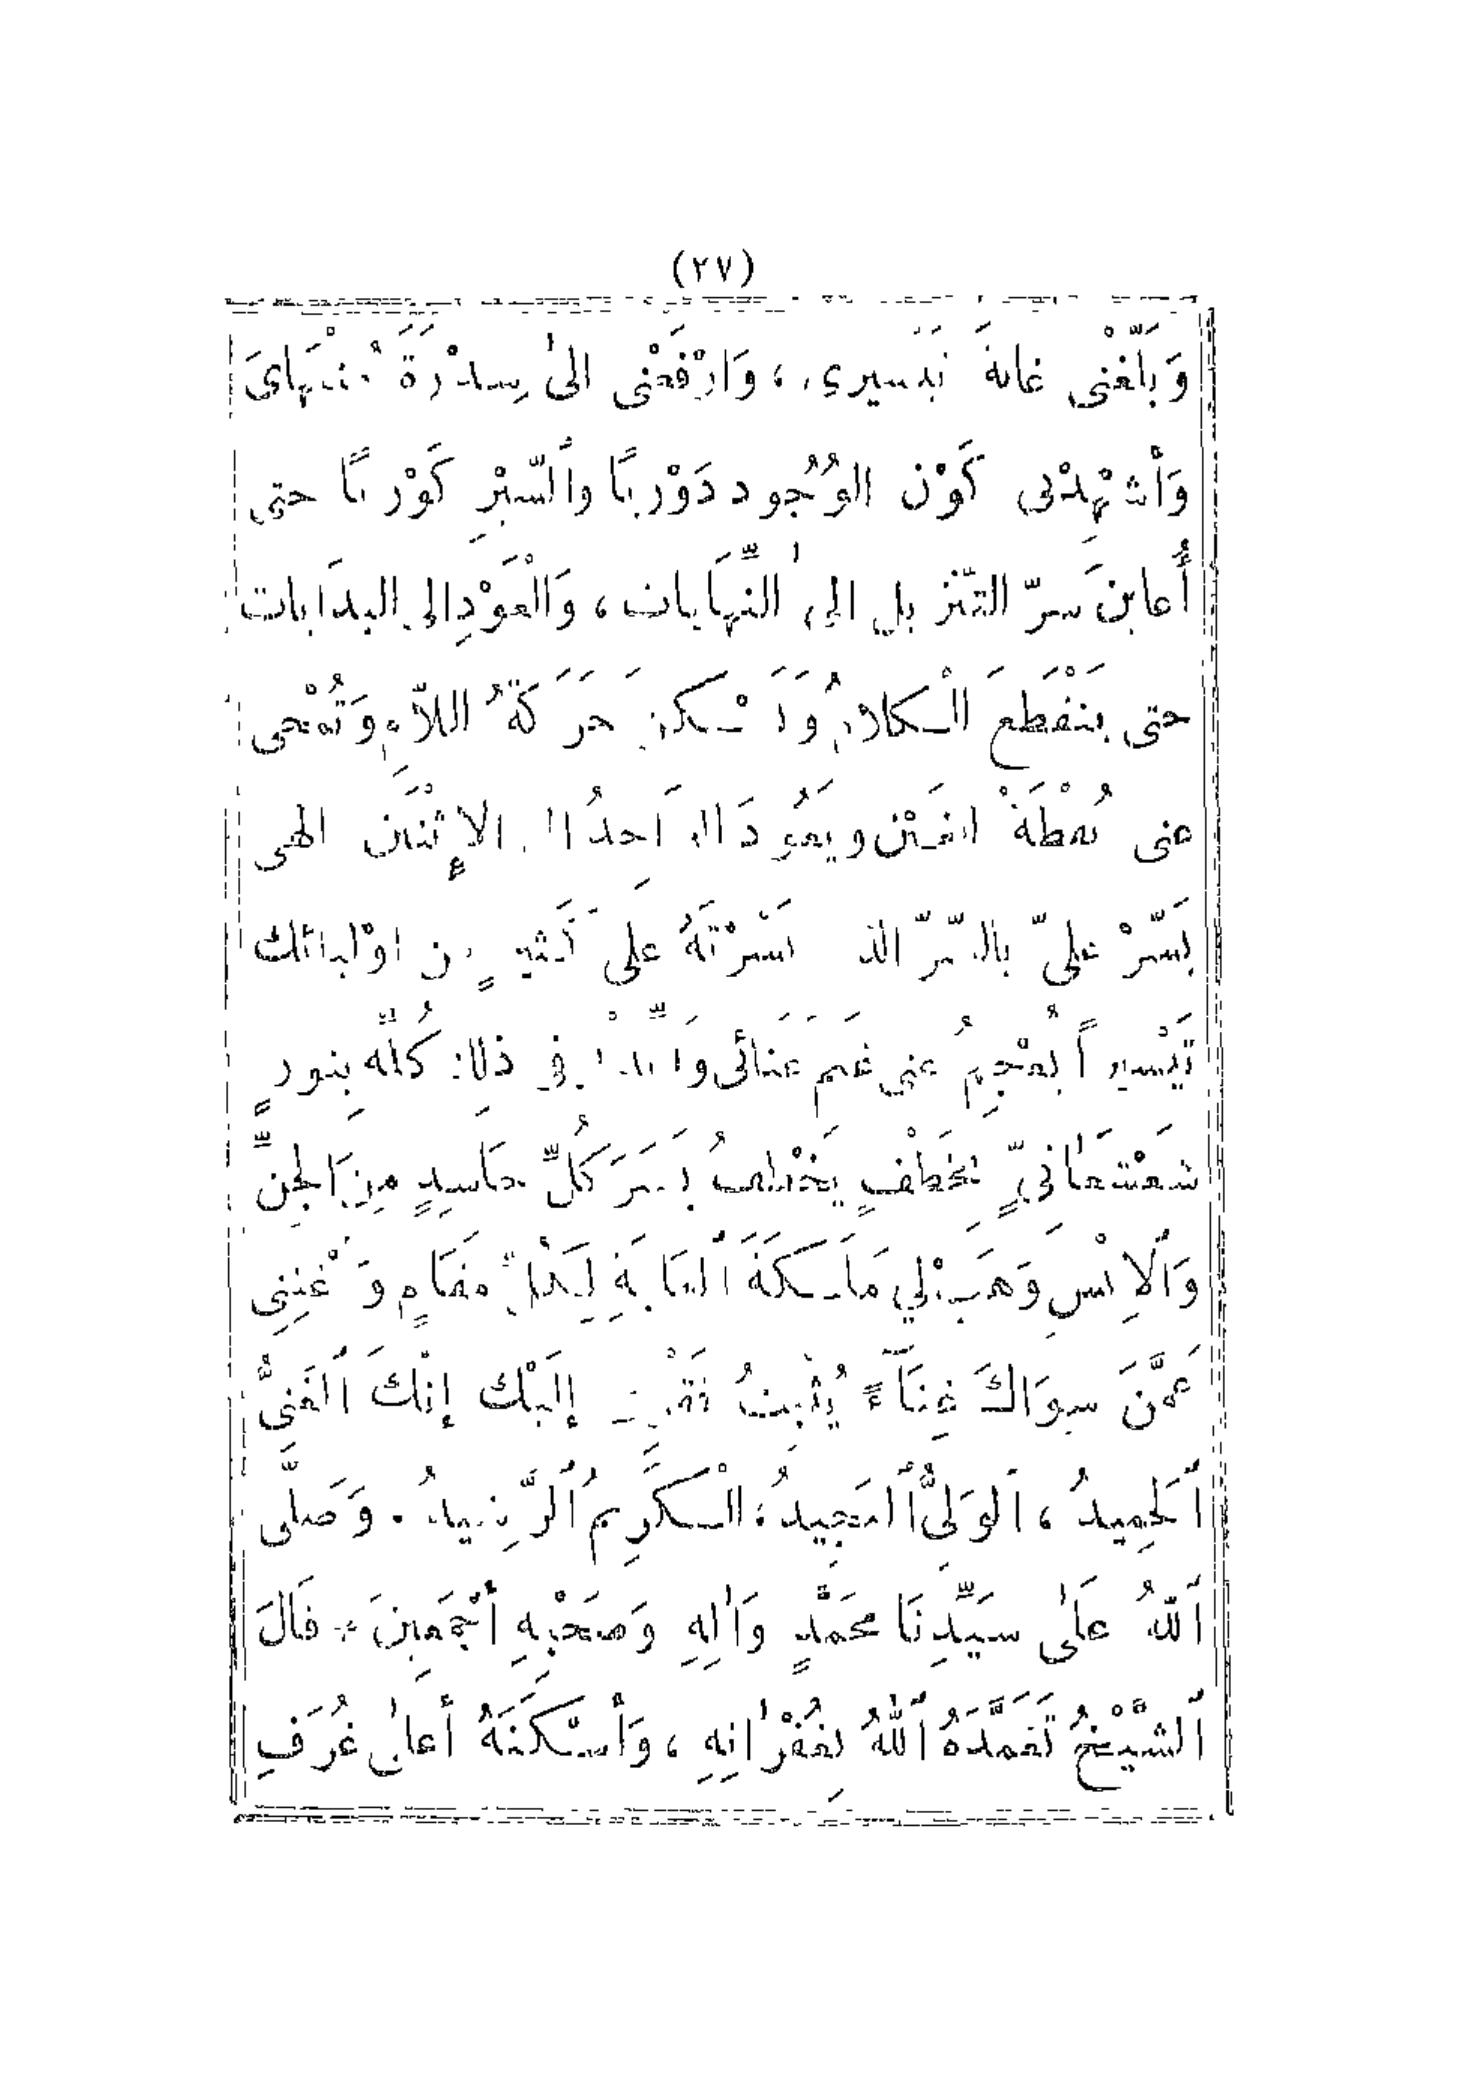 (٢٧)
وَبَلِّغْنِى غايةَ تَيْسيرى ، وَارْفَعْنِى الىٰ سِدْرَةَ مُنْتَهَاىَ
وَأشْهِدْنِى كَوْن الوُجُود دَوْريًا والسَّيْرِ كَوْريًا حتى
أُعاينَ سرّ التنزيل الى النِّهَايات ، وَالْعَوْدِ الى البدَايات
حتى يَنْقَطِعَ الْكلامُ وَتَسْكنَ حَرَكَةُ اللاَّمِ وَتُمْحى
عنى نُقْطَةُ الغَيْن ويعُودَ الواَحِدُ الى الإِثْنَين الهى
يَسِّرْ علىّ بالسّرّ الذى يَسَّرْتَهُ عَلى كَثيرٍ من اوْليائك
تَيْسيراً يُعْجِمُ عنى غَيم عَنَائى وَأيِّدْنى فى ذلك كُلِّه بِنورٍ
شَعْشَعَانِيٍّ يَخْطَفُ بَصَرَ كُلِّ حَاسِدٍ مِنَ الجِنِّ
وَٱلاِنْسِ وَهَبْ لِي مَلَكَةَ ٱلغَلَبَةِ لِكُلِّ مَقَامٍ وَأغْنِنِى
عَمَّنْ سِوَاكَ غِنَآءً يُثْبِتُ فَقْرِى إلَيْك إنْكَ ٱلغَنِىُّ
ٱلحَمِيدُ ، ٱلوَلِىُّ ٱلمَجِيدُ ، الْكَرِيمُ ٱلرَّشِيدُ . وَصَلَّى
ٱللّهُ عَلىٰ سَيِّدِنَا محَمَّدٍ وَاٰلِهِ وَصَحْبِهِ أجْمَعِينَ - قَالَ
ٱلشَّيْخُ تَغَمَّدَهُ ٱللهُ بِغُفْرٰانِهِ ، وَأسْكَنَهُ أعلىٰ غُرَفِ